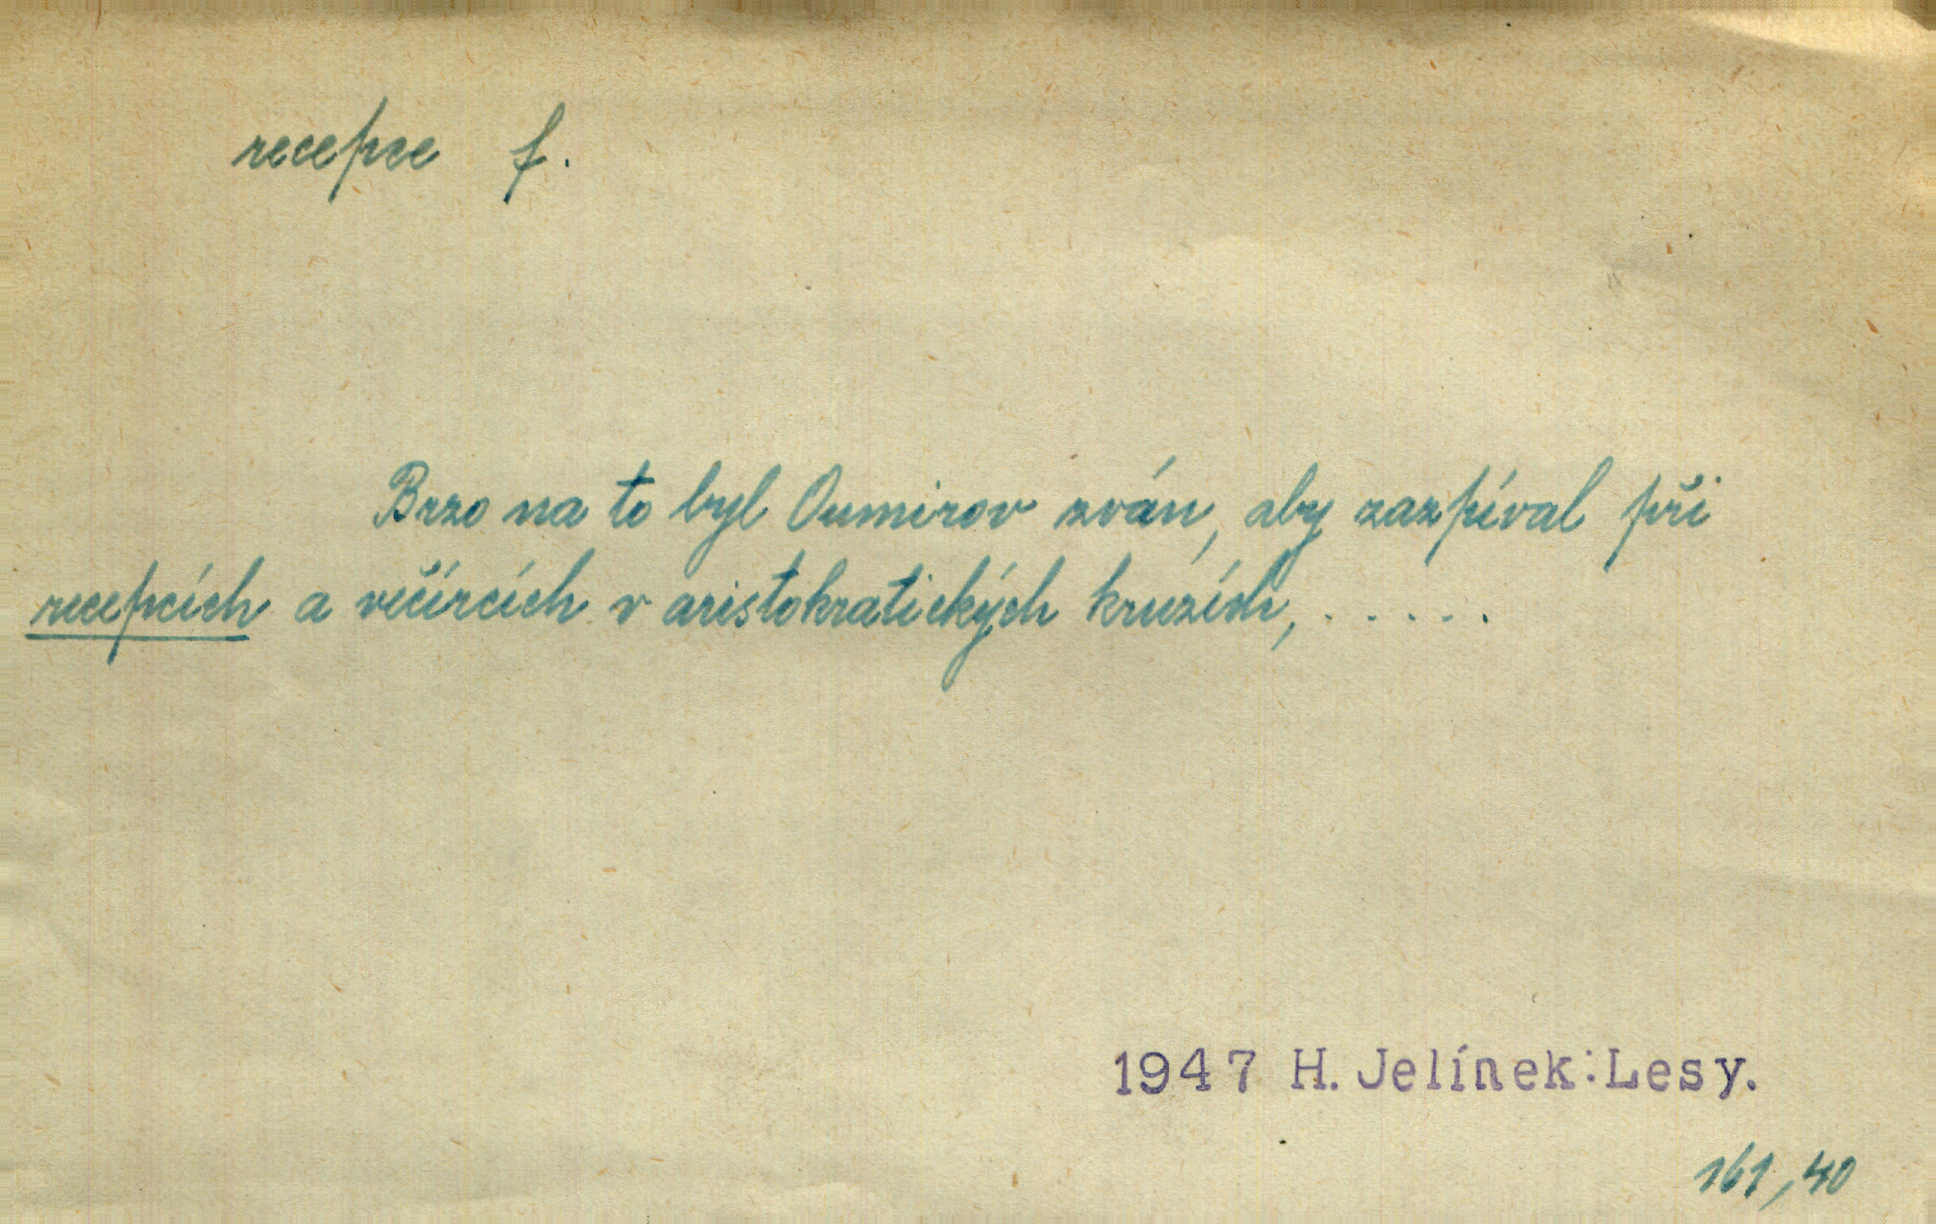 recepce f.
Brzo na to byl Oumirov zván, aby zazpíval při
recepcích a večírcích v aristokratických kruzích, . . . . .
1947 H. Jelínek: Lesy.
161, 40